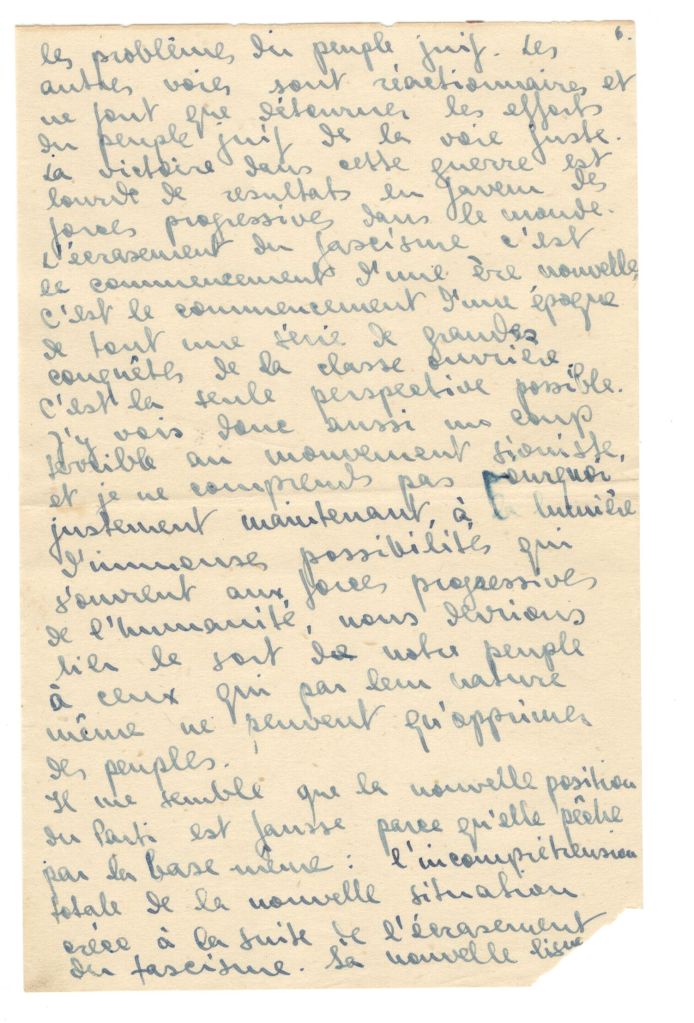 6.
les problèmes du peuple juif. Les
autres voies sont réactionnaires et
ne font que détourner les efforts
du peuple juif de la voie juste.
La victoire dans cette guerre est
lourde de resultats en faveur des
forces progressives dans le monde.
L'écrasement du fascisme c'est
le commencement d'une ère nouvelle,
c'est le commencement d'une époque
de tout une série de grandes
conquêtes de la classe ouvrière.
C'est la seule perspective possible.
J'y vois donc aussi un coup
terrible au mouvement sioniste,
et je ne comprends pas pourquoi
justement maintenant, à la lumière
d'immenses possibilités qui
s'ouvrent aux forces progressives
de l'humanité, nous devrions
lier le sort de notre peuple
à ceux qui par leur nature
même ne peuvent qu'opprimer
des peuples.
Il me semble que la nouvelle position
du Parti est fausse parce qu'elle pêche
par la base même : l'incompréhension
totale de la nouvelle situation
créée à la suite de l'écrasement
du fascisme. Sa nouvelle ligne